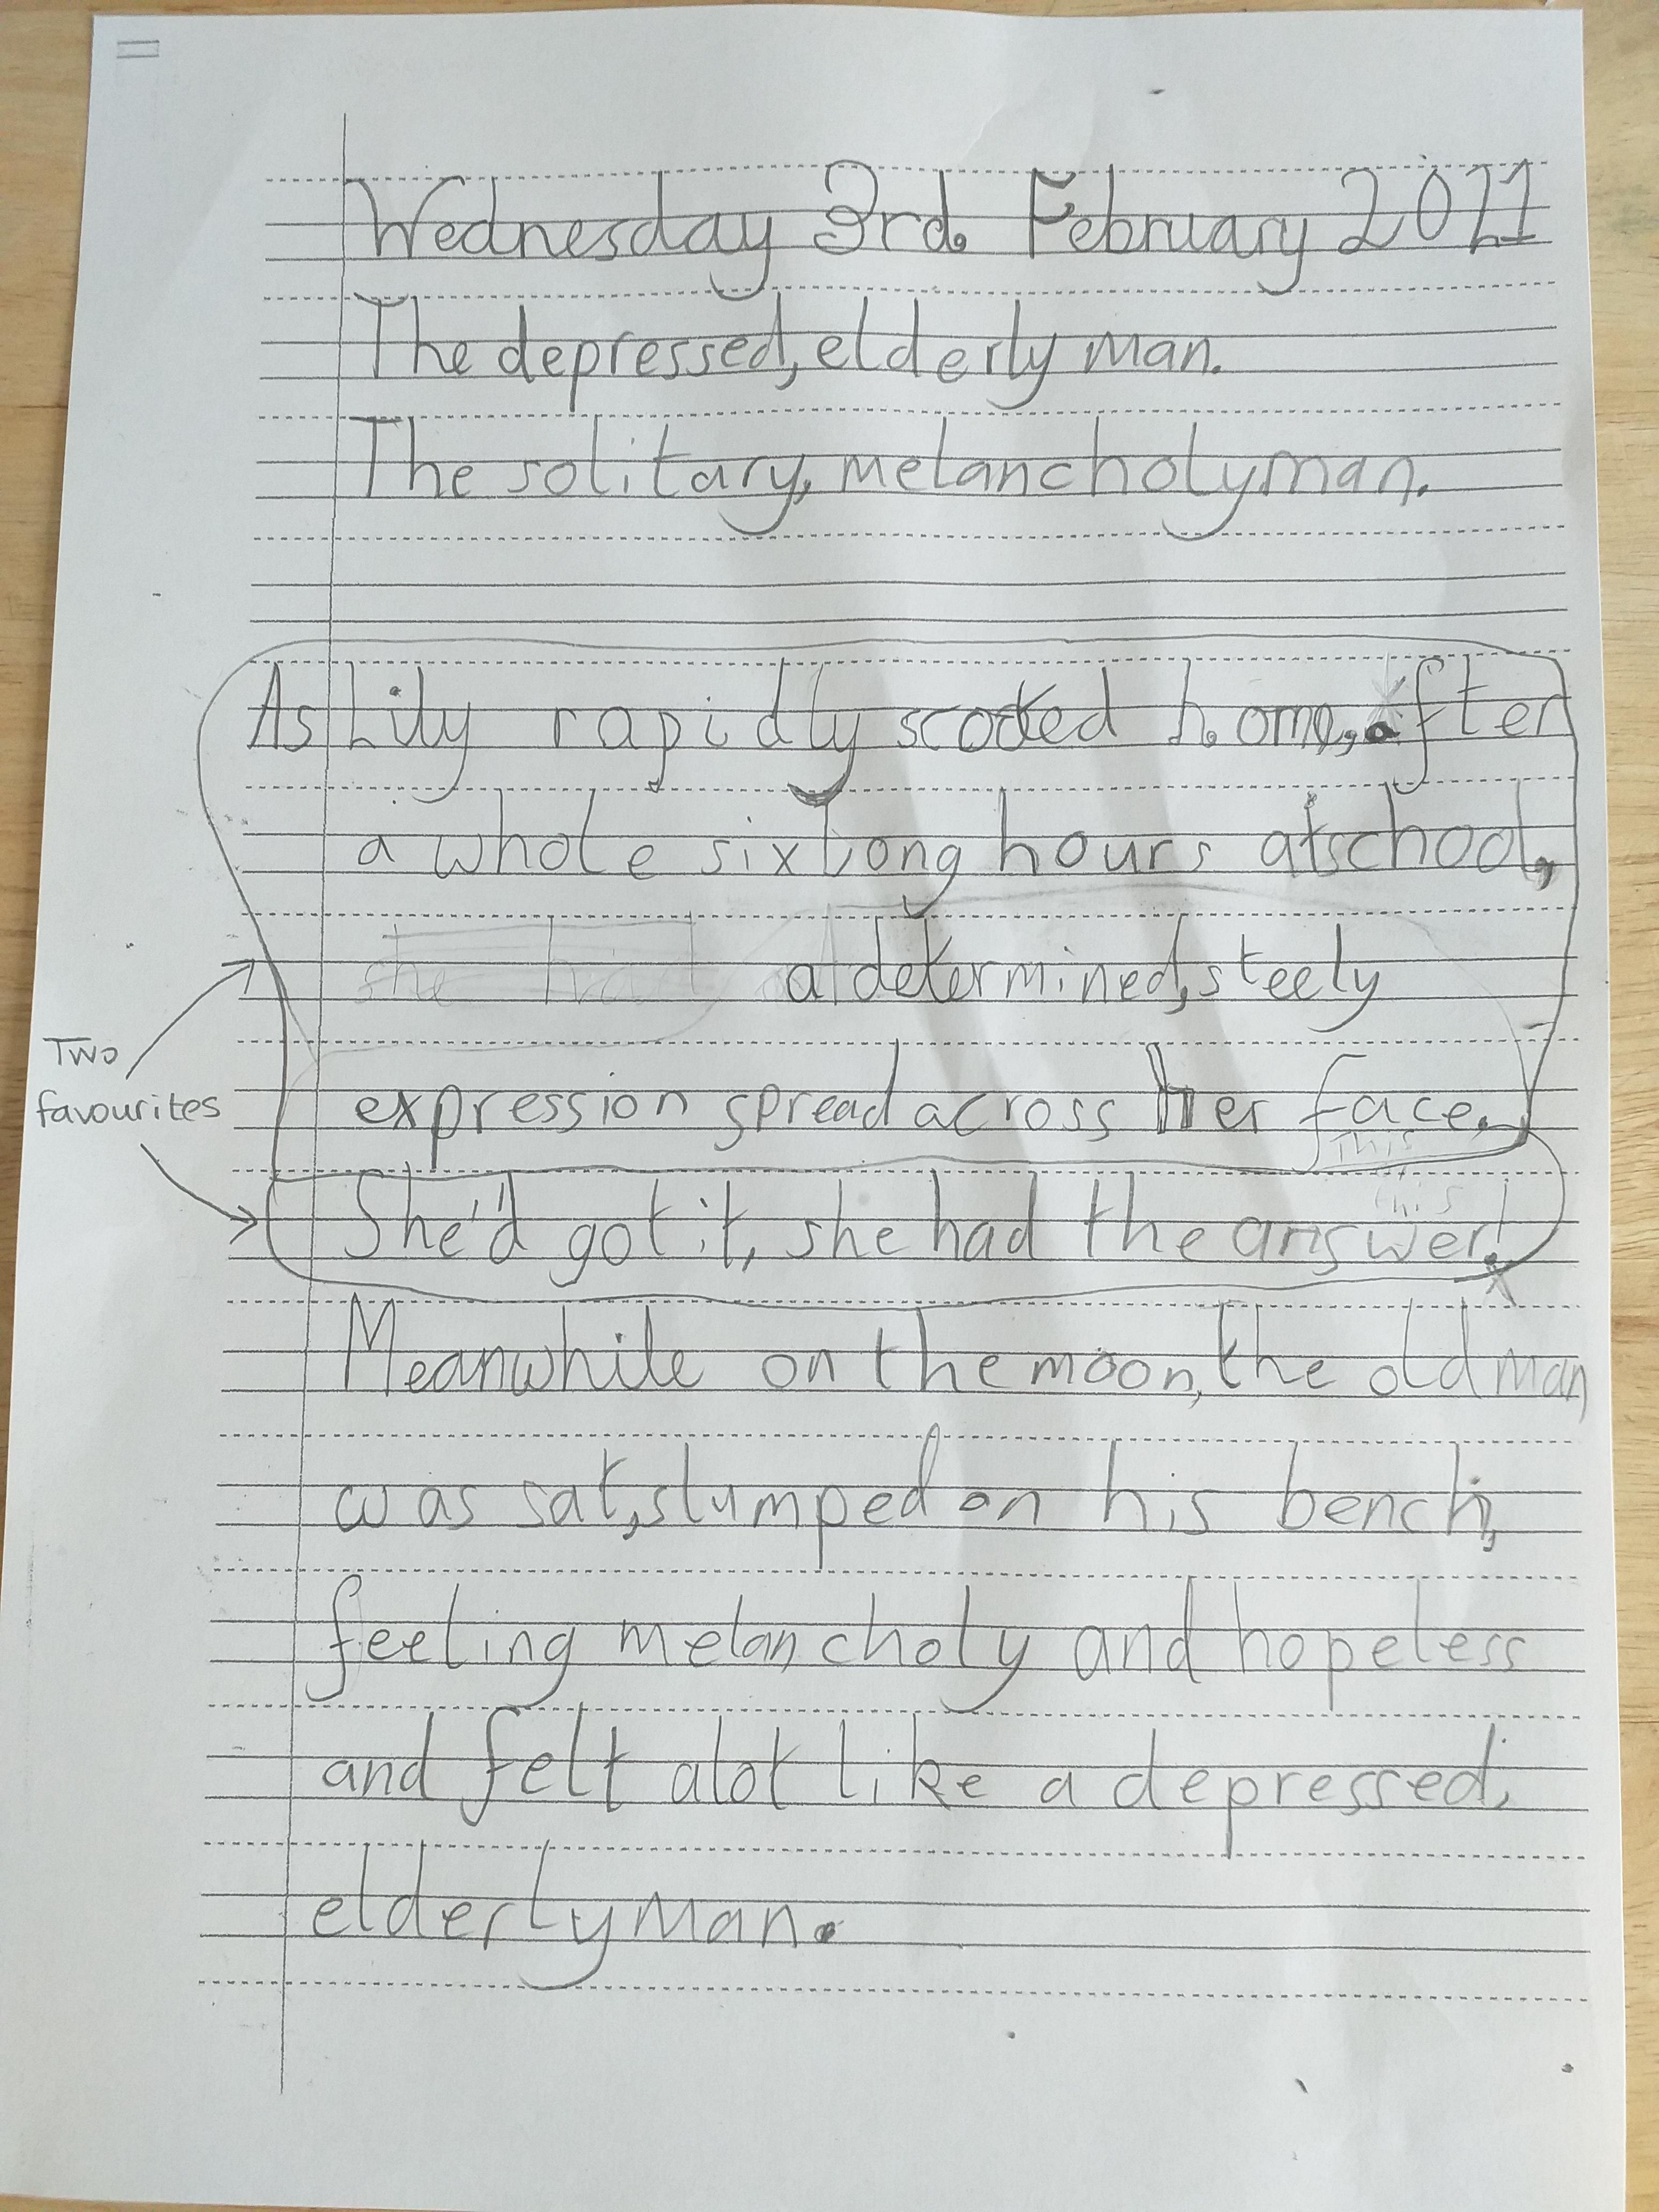 Wednesday 3rd. February 2021
The depressed, elderly man.
The solitary, melancholy man.
As Lily rapidly scooted home, after
a whole six long hours at school,
she had a determined, steely
Two
favourites
expression spread across her face.
This
this
She'd got it, she had the answer!
Meanwhile on the moon, the old man
was sat, slumped on his bench,
feeling melancholy and hopeless
and felt alot like a depressed,
elderly man.